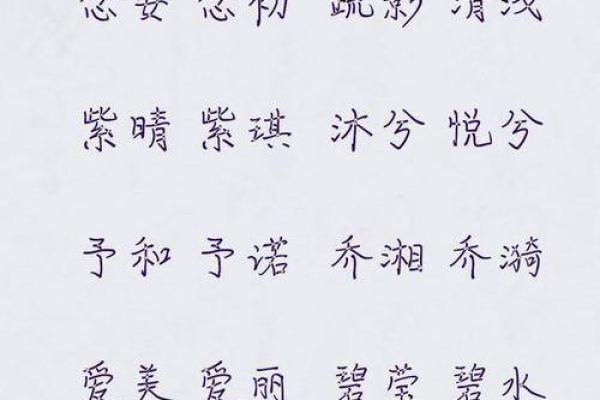 念安 念初 疏影 清浅
紫晴 紫琪 沐兮 悦兮
予和 予诺 乔湘 乔漪
爱美 爱丽 碧莹 碧水